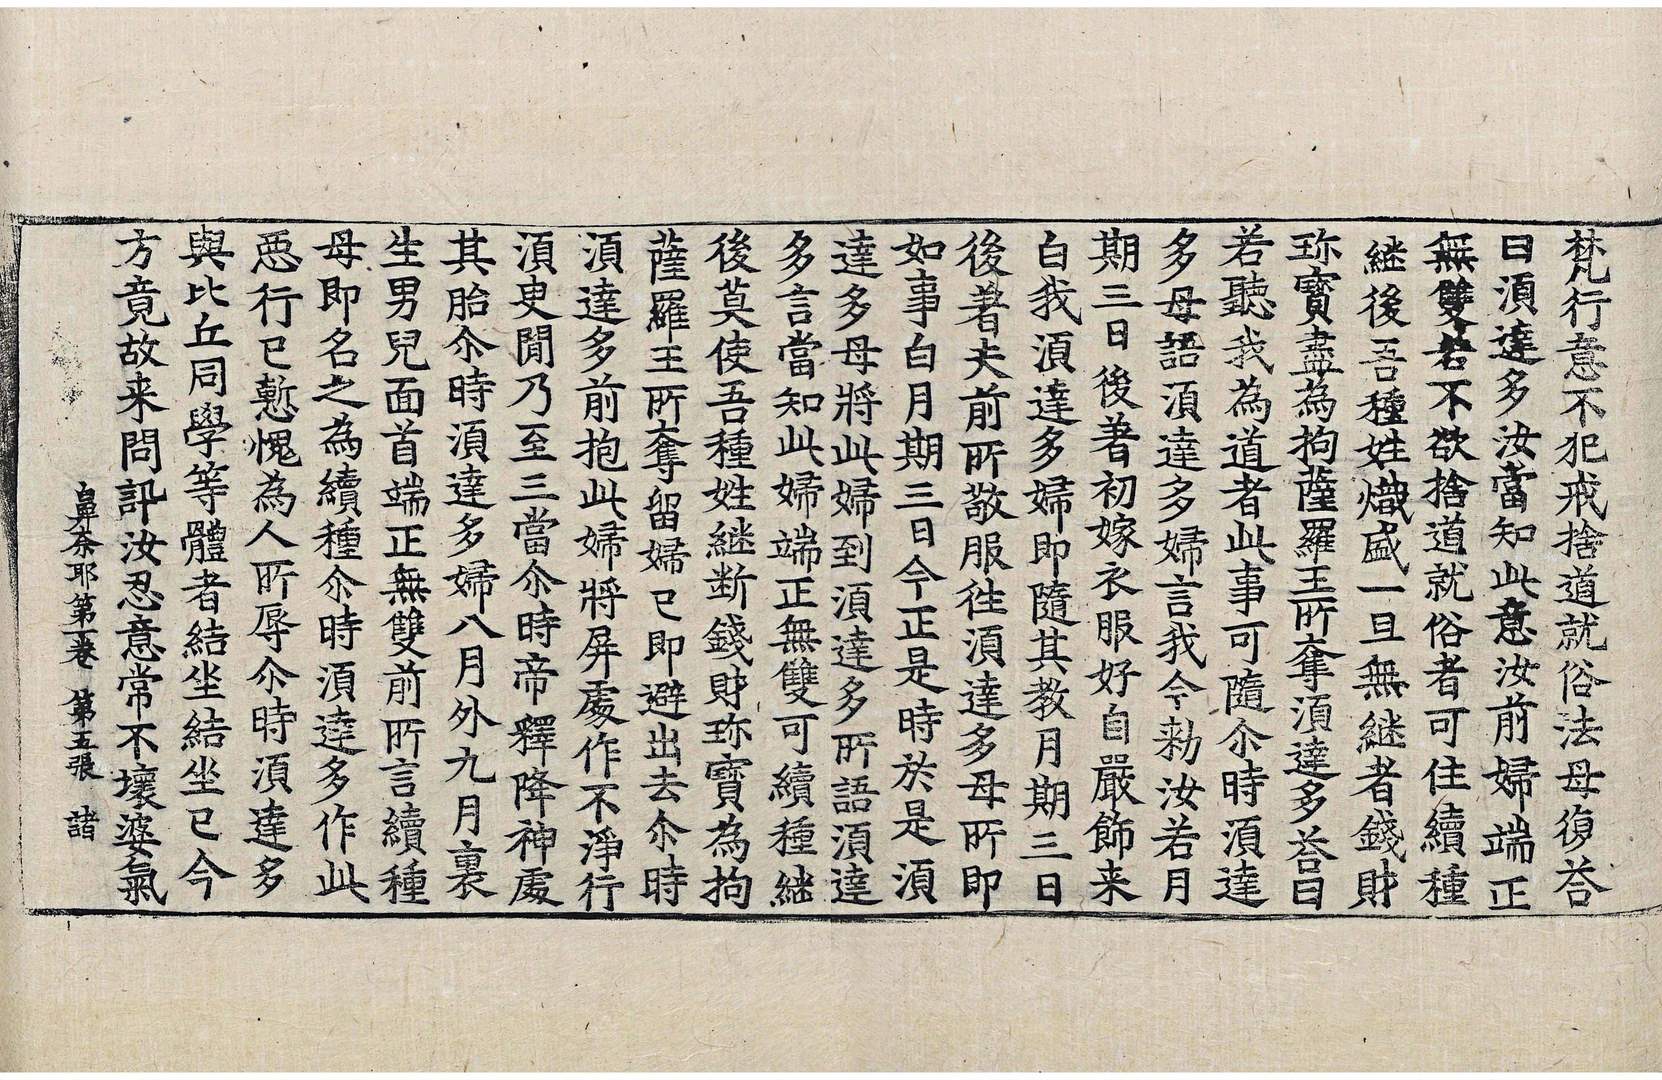 梵行意不犯戒捨道就俗法母復荅
曰湏達多汝當知此意汝前婦端正
無雙若不欲捨道就俗者可住續種
継後吾種姓熾盛一旦無継者錢財
珎寶盡為拘薩羅王所奪湏達多荅曰
若聽我為道者此事可隨尒時湏達
多母語湏達多婦言我今勑汝若月
期三日後著初嫁衣服好自嚴飾来
白我湏達多婦即隨其教月期三日
後著夫前所敬服徃湏達多母所即
如事白月期三日今正是時於是湏
達多母將此婦到湏達多所語湏達
多言當知此婦端正無雙可續種継
後莫使吾種姓継断錢財珎寶為拘
薩羅王所奪留婦已即避出去尒時
湏達多前抱此婦將屏處作不淨行
湏臾閒乃至三當尒時帝釋降神處
其胎尒時湏達多婦八月外九月裏
生男兒面首端正無雙前所言續種
母即名之為續種尒時湏達多作此
惡行已慙愧為人所辱尒時湏達多
與比丘同學等體者結坐結坐已今
方竟故来問訊汝忍意常不壞婆氣
鼻奈耶第一卷　第五張　諸